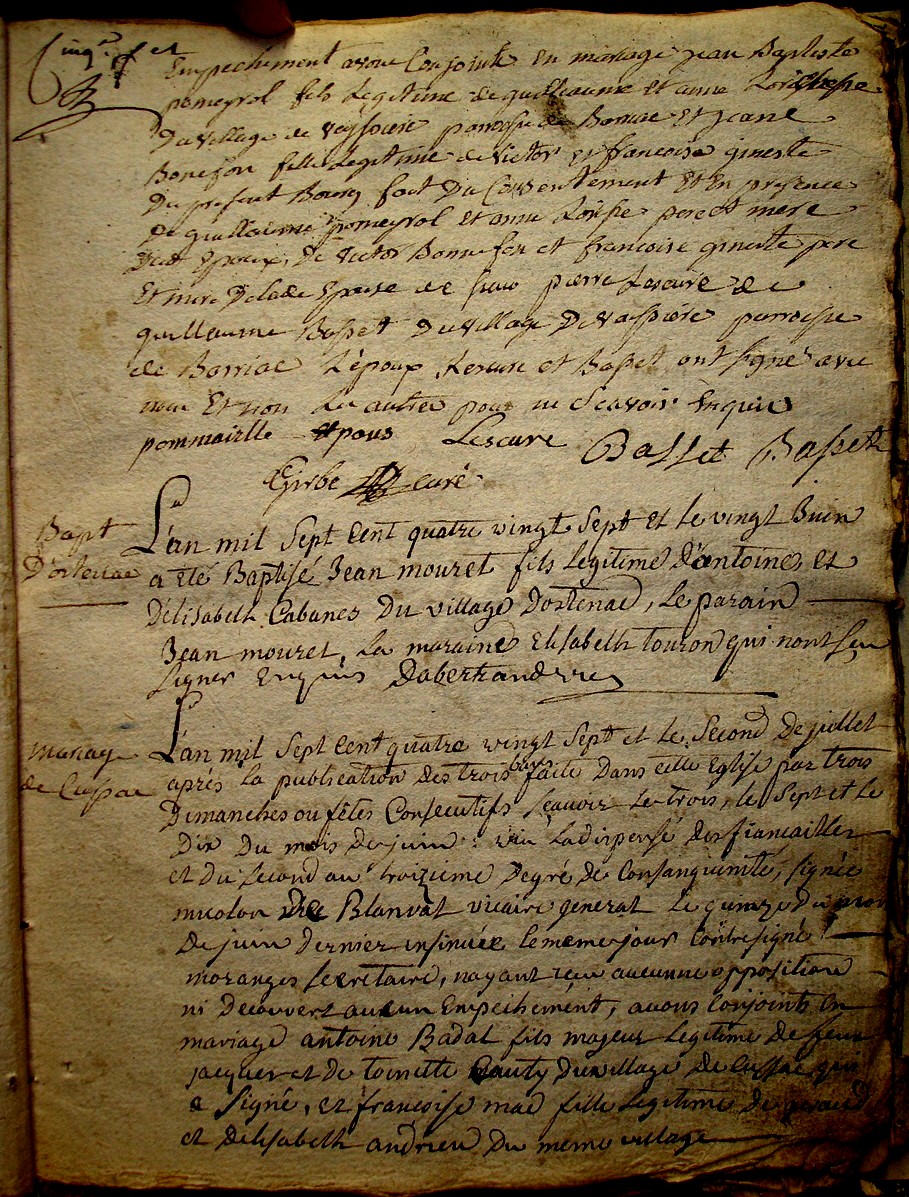 Cinq. f et
Empechement avons Conjoints En mariage jean Baptiste
pomeyrol fils Legitime de guilleaume Et anne
Du village de vaissiere paroisse de Et jeane
Bonefon fille Legitime de victor Et francoise gineste
Du present Bourg fait Du Consentement Et En presence
De guillaume pomeyrol Et anne pere Et mere
Dud Epoux, De victor Bonnefon et francoise gineste pere
Et mere Delade Epouse de pierre Lescure de
guillaume Basset Du village De vassiere parroisse
de Barriac L'epoux, Lescure et Basset ont signé avec
nous Et non Les autres pour ne Scavoir Enquis
pommairlle Epous Lescure Basset Basset
Girbe curé
Bapt
D'ostenac
L'an mil Sept Cent quatre vingt Sept Et Le vingt Juin
a Eté Baptisé Jean mouret fils Legitime d'antoine, et
D'élisabeth Cabanes Du village Dostenac, Le parain
Jean mouret, La maraine Elisabeth touron qui nont Sçu
Signer Enquis Dabertrand vre
mariage
de Cussac
L'an mil Sept Cent quatre vingt Sept et le Second De juillet
après la publication des trois bans faite Dans cette Eglise par trois
Dimanches ou fêtes Consecutifs Scavoir Le trois, le Sept et Le
Dix Du mois De juin : vu La dispense des fiancailles
et du Second au troizieme Degré de Consanguinité, signée
micolon De Blanval vicaire general Le quinze Du mois
De juin dernier insinuée le meme jour Contresigné
moranges Secretaire, nayant reçu aucunne opposition
ni Decouvert aucun Empechement, avons Conjoints En
mariage antoine Badal fils majeur Legitime de feu
jacques et de toinette Cauty Du village de Cussac qui
a Signé, et francoise mas fille Legitime De geraud
et delisabeth andrieu Du meme village